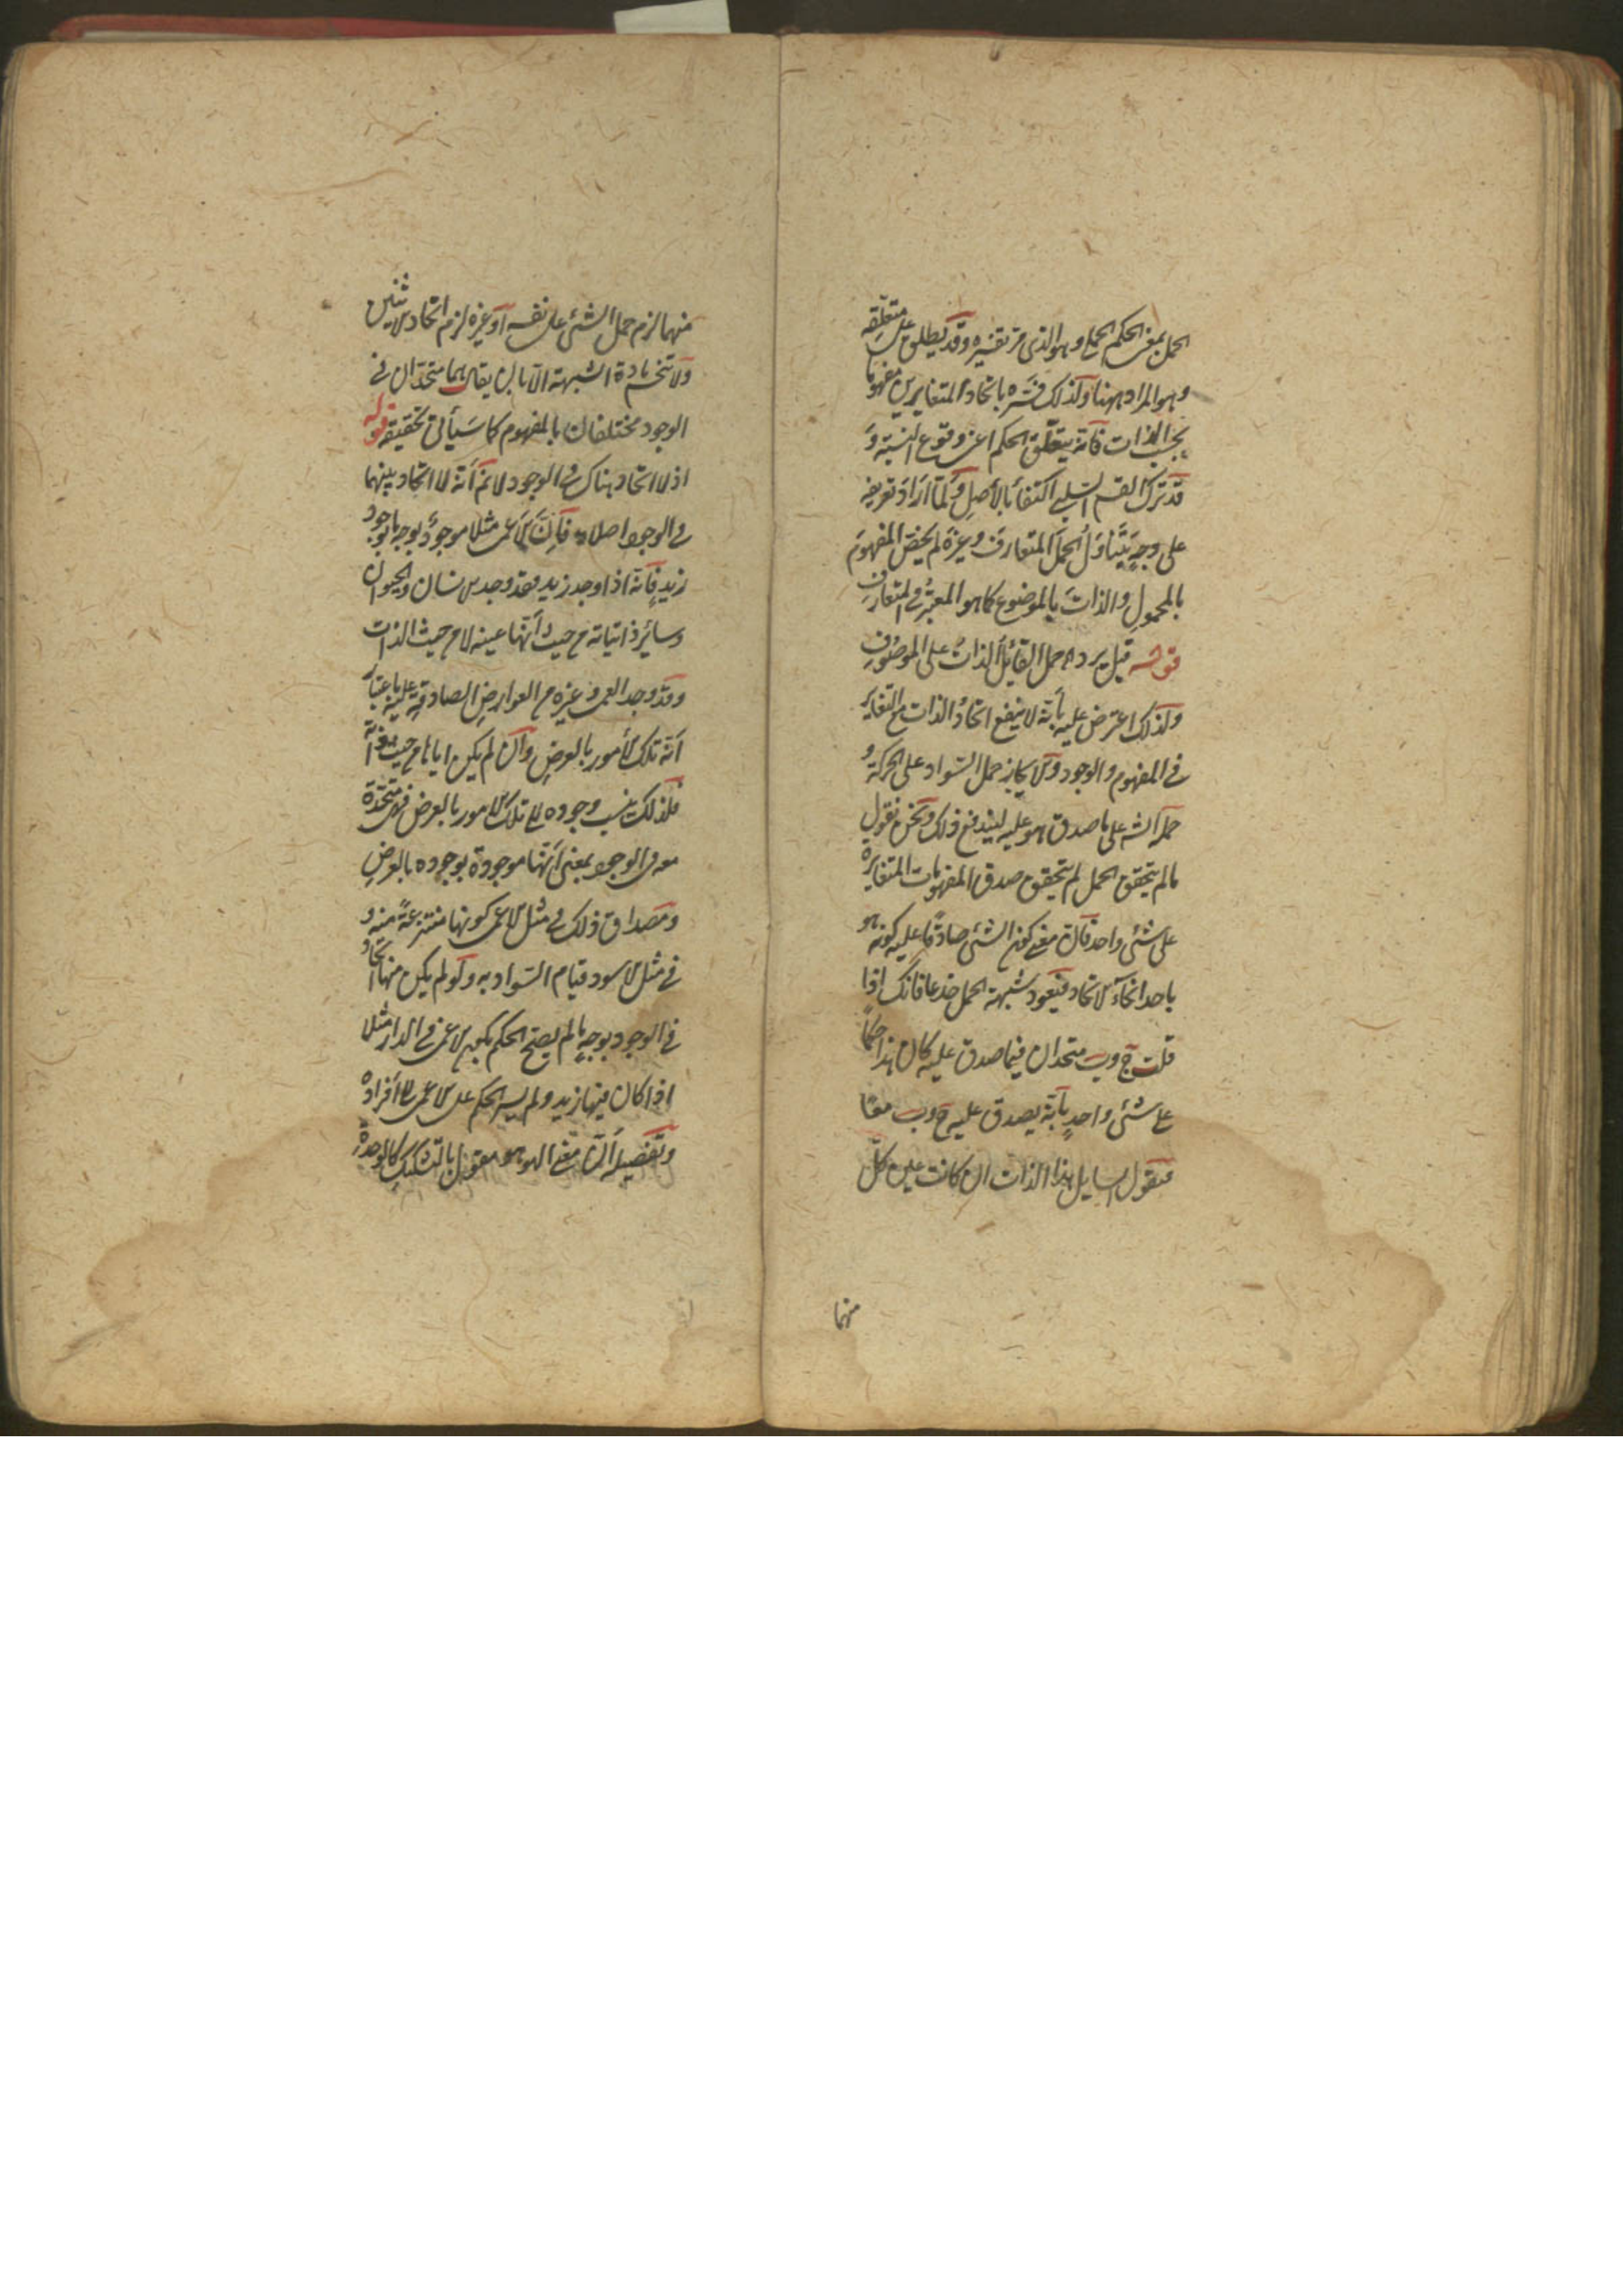 الحمل بمعنى الحكم الحملي وهو الذي مر تفسيره وقد يطلق على متعلقه
وهو المراد ههنا ولذلك فسره باتحاد المتغايرين مفهوما
بحسب الذات فانه يتعلق الحكم اعني وقوع النسبة و
قد ترك القسم السلبي اكتفاء بالاصل ولما اراد تعريفه
على وجه يتناول الحمل المتعارف وغيره لم يخص المفهوم
بالمحمول والذات بالموضوع كما هو المعتبر في المتعارف
قوله قيل يرده حمل القائل الذات على الموصوف
ولذلك اعترض عليه بانه لا ينفع اتحاد الذات مع التغاير
في المفهوم والوجود والا لجاز حمل السواد على الحركة و
حمله الش على ما صدق هو عليه ليندفع ذلك ونحن نقول
ما لم يتحقق الحمل لم يتحقق صدق المفهومات المتغايرة
على شئ واحد فان معنى كون الشئ صادقا عليه كونه هو
باحد انحاء الاتحاد فيعود شبهة الحمل جذعا فانك اذا
قلت ج وب متحدان فيما صدق عليه كان هذا حكما
على شئ واحد بانه يصدق عليه ج وب معا
فيقول السايل هذا الذات ان كانت عين كل
منهما
منهما لزم حمل الشئ على نفسه او غيره لزم اتحاد الاثنين
ولا تنحسم مادة الشبهة الا بان يقال هما متحدان في
الوجود مختلفان بالمفهوم كما سيأتي تحقيقه قوله
اذ لا اتحاد هناك في الوجود لا نم أنه لا اتحاد بينهما
في الوجود اصلا فان الاعمى مثلا موجود بوجه ما بوجود
زيد فانه اذا وجد زيد فقد وجد الانسان والحيوان
وسائر ذاتياته من حيث أنها عينه لا من حيث الذات
وقد وجد العمى وغيره من العوارض الصادقة عليه باعتبار
أنه تلك الأمور بالعرض وان لم يكن اياها من حيث
فلذلك ينسب وجوده الى تلك الامور بالعرض فهي متحدة
معه في الوجود بمعنى أنها موجودة بوجوده بالعرض
ومصداق ذلك في مثل الاعمى كونها منتزعة منه و
في مثل الاسود قيام السواد به ولو لم يكن منها اتحاد
في الوجود بوجه ما لم يصح الحكم بكون الاعمى في الدار مثلا
اذا كان فيها زيد ولم يسر الحكم على الاعمى الى أفراده
وتفصيله أن معنى الهو هو مقول بالتشكيك كالوحدة